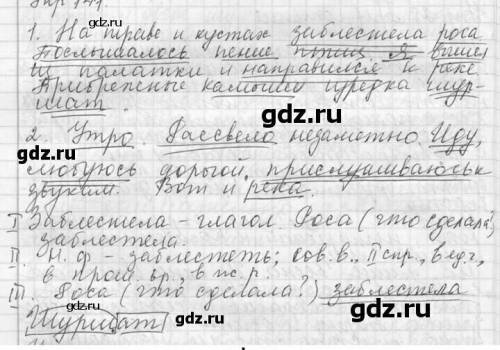 Упр 141.
1. На траве и кустах заблестела роса
Послышалось пение птиц. Я вышел
из палатки и направился к реке
Прибрежные камыши изредка шур-
шат.
gdz.ru gdz.ru
2. Утро. Рассвело незаметно. Иду,
любуюсь дорогой, прислушиваюсь к
звукам. Вот и река.
gdz.ru gdz.ru
I Заблестела – глагол. Роса (что сделала)
заблестела.
II. Н.ф – заблестеть; сов.в., II спр., в ед.ч.,
в прош. вр., в ж.р.
III. Роса (что сделала?) заблестела
Шуршат
gdz.ru gdz.ru